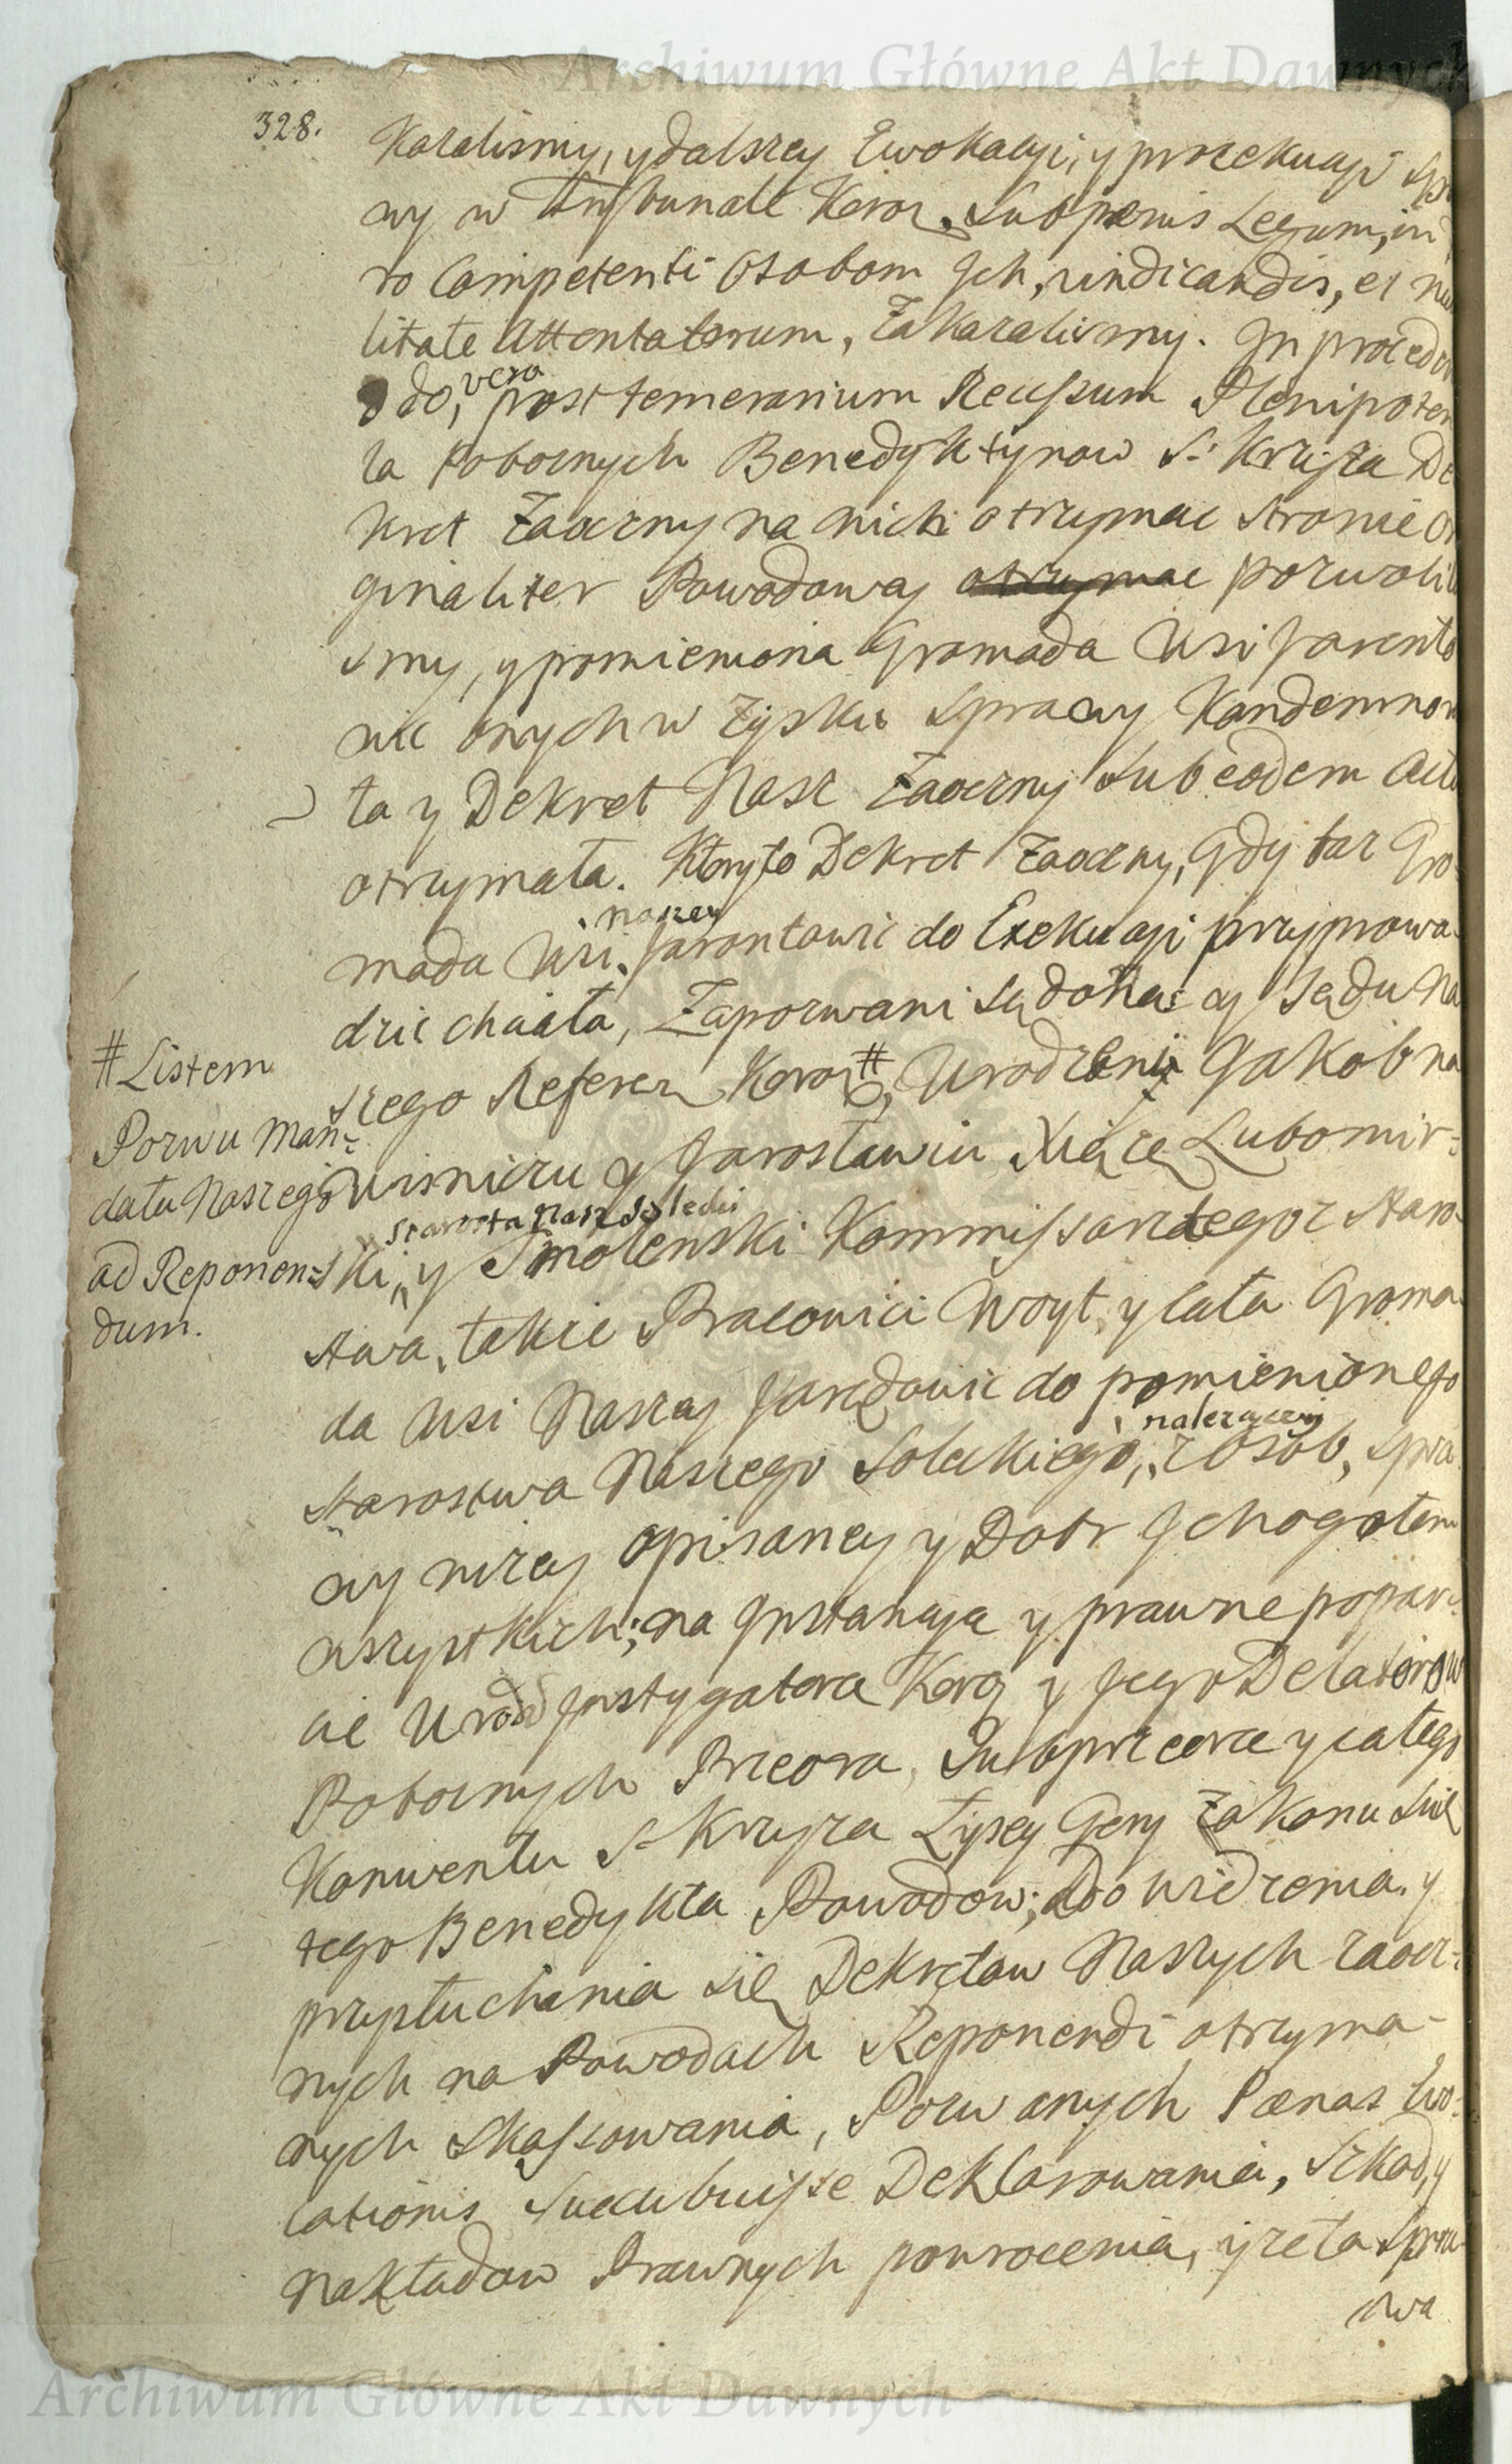 Archiwum Główne Akt Dawnych
328.
Kazalismy, y dalszey Ewokacyi, y prosekucyi Spra
wy w Trybunale Koron. Sub pœnis Legum, in
ro Competenti Osobom Ich, vindicandis, et nul
litate Attentatorum, Zakazalismy. In procedon
do, vero post temerarium Recessum Plenipoten
ta Pobocnych Benedyktynow S. Krzyża De
kret Zaoczny na nich otrzymac Stronie Ori
ginaliter Powodowey otrzymac pozwolili
smy, y pomieniona Gromada Wsi Jarento
wic onych w Zysku Sprawy Kondemnow
ta y Dekret Nasz Zaoczny Sub eodem Actu
otrzymała. Ktoryto Dekret Zaoczny, Gdy taz Gro-
mada Wsi naszey Jarontowic do Exekucyi przyprowa-
dzic chciała, Zapozwani są do Nas y Sądu Na
szego Referen Koron #, Urodzeni Jakob na
# Listem
Pozwu Man=
datu Naszego
ad Reponen=
dum.
Wisniczu y Jarosławiu Xiąze Lubomir=
ski, Starosta nasz Solecki y Smolenski Kommissarz tegoz Staro-
stwa, takze Pracowici Woyt, y cała Groma
da Wsi Naszey Jaredowic do pomienionego
Starostwa Naszego Soleckiego, nalezącey z Osob, Spra
wy nizey opisaney y Dobr Ich ogołem
wszystkich; na Instancyą y prawne poparci
cie Urodz Instygatora Koron y Jego Delatorow
Pobocnych Przeora, Subprzeora y całego
Konwentu S. Krzyza Łysey Gory Zakonu Swię
tego Benedykta Powodow; do widzenia y
przysłuchania się Dekretow Naszych zaocz=
nych na Powodach Reponendi otrzyma-
nych Skassowania, Pozwanych Pœnas Evo=
cationis Succubuisse Deklarowania, Szkod, y
Nakładow Prawnych powrocenia, yzeta Spra
wa
Archiwum Główne Akt Dawnych